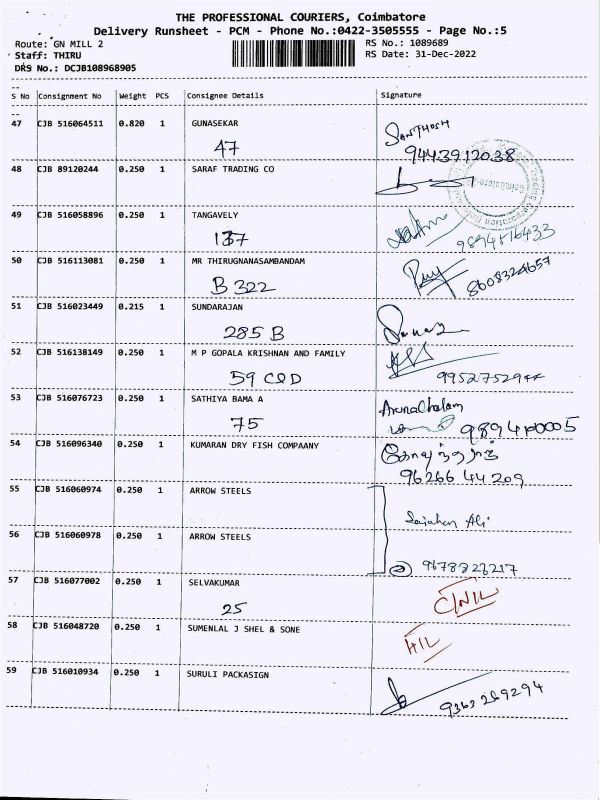 THE PROFESSIONAL COURIERS, Coimbatore
Delivery Runsheet - PCM - Phone No.:0422-3505555 - Page No.:5
Route: GN MILL 2 RS No.: 1089689
Staff: THIRU RS Date: 31-Dec-2022
DRS No.: DCJB108968905
S No Consignment No Weight PCS Consignee Details Signature
47 CJB 516064511 0.820 1 GUNASEKAR SANTHOSH
47 9443912038
48 CJB 89120244 0.250 1 SARAF TRADING CO
49 CJB 516058896 0.250 1 TANGAVELY
137 9894816433
50 CJB 516113081 0.250 1 MR THIRUGNANASAMBANDAM
B 322 8608324657
51 CJB 516023449 0.215 1 SUNDARAJAN
285 B
52 CJB 516138149 0.250 1 M P GOPALA KRISHNAN AND FAMILY
59 C&D 9952752944
53 CJB 516076723 0.250 1 SATHIYA BAMA A Arunachalam
75 9894140005
54 CJB 516096340 0.250 1 KUMARAN DRY FISH COMPAANY
96266 44 209
55 CJB 516060974 0.250 1 ARROW STEELS
Sajahan Ali
56 CJB 516060978 0.250 1 ARROW STEELS
9678823217
57 CJB 516077002 0.250 1 SELVAKUMAR
25
58 CJB 516048720 0.250 1 SUMENLAL J SHEL & SONE
59 CJB 516010934 0.250 1 SURULI PACKASIGN
9363289294